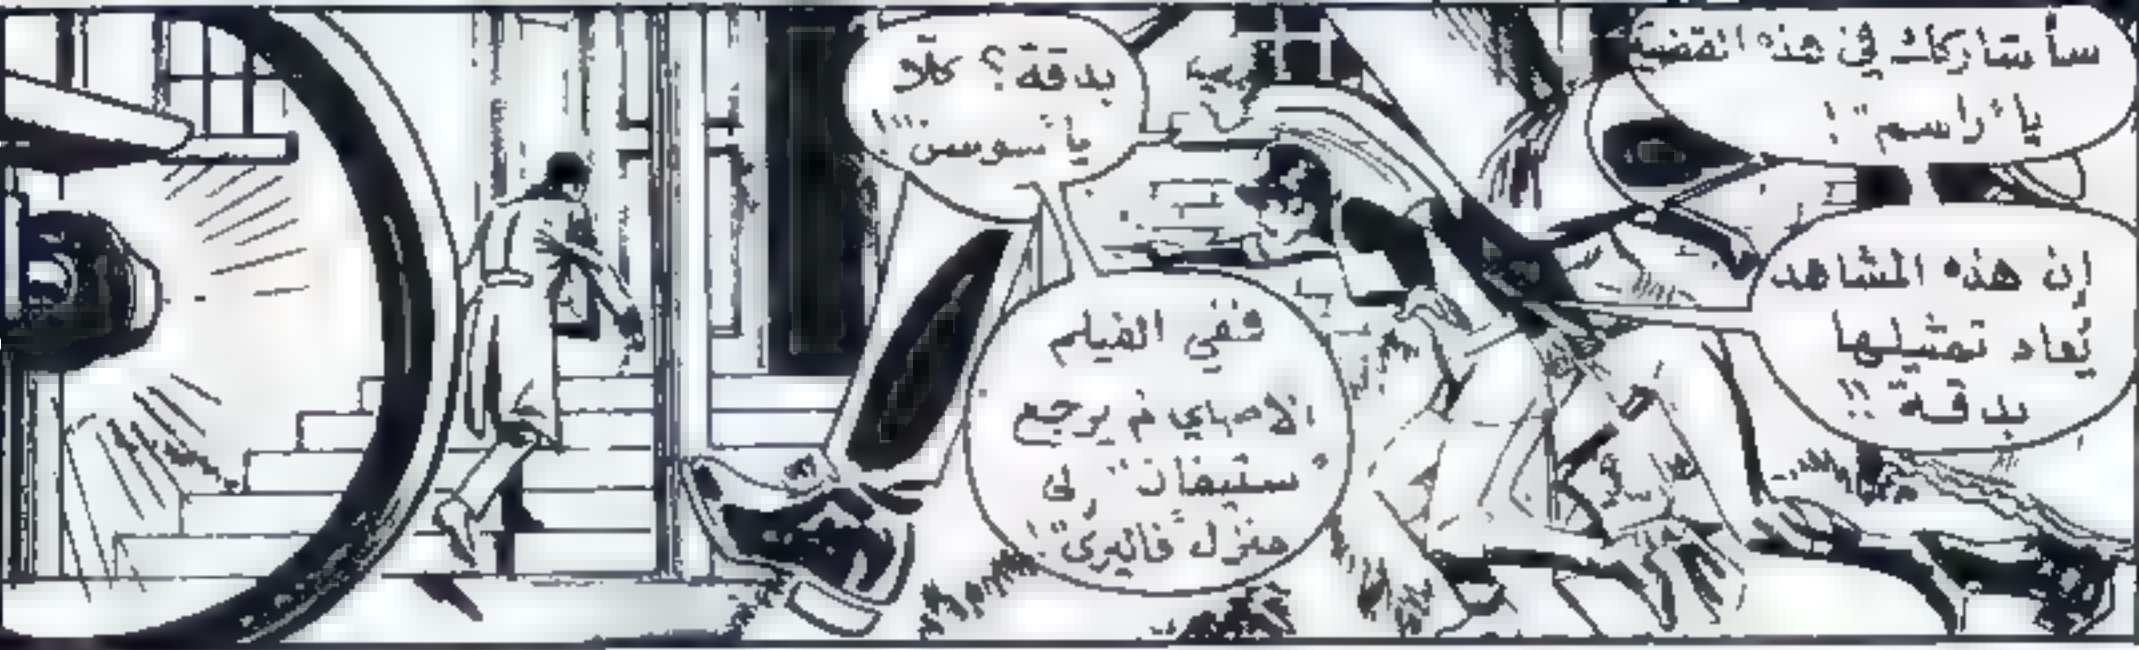 سأشاركك في هذه القضية
يا "راسم"!
إن هذه المشاهد
يُعاد تمثيلها
بدقة"!!
بدقة؟ كلّا
يا "سوسن"!
ففي الفيلم
الاصلي لم يرجع
"ستيفان" إلى
منزل "فاليري"!